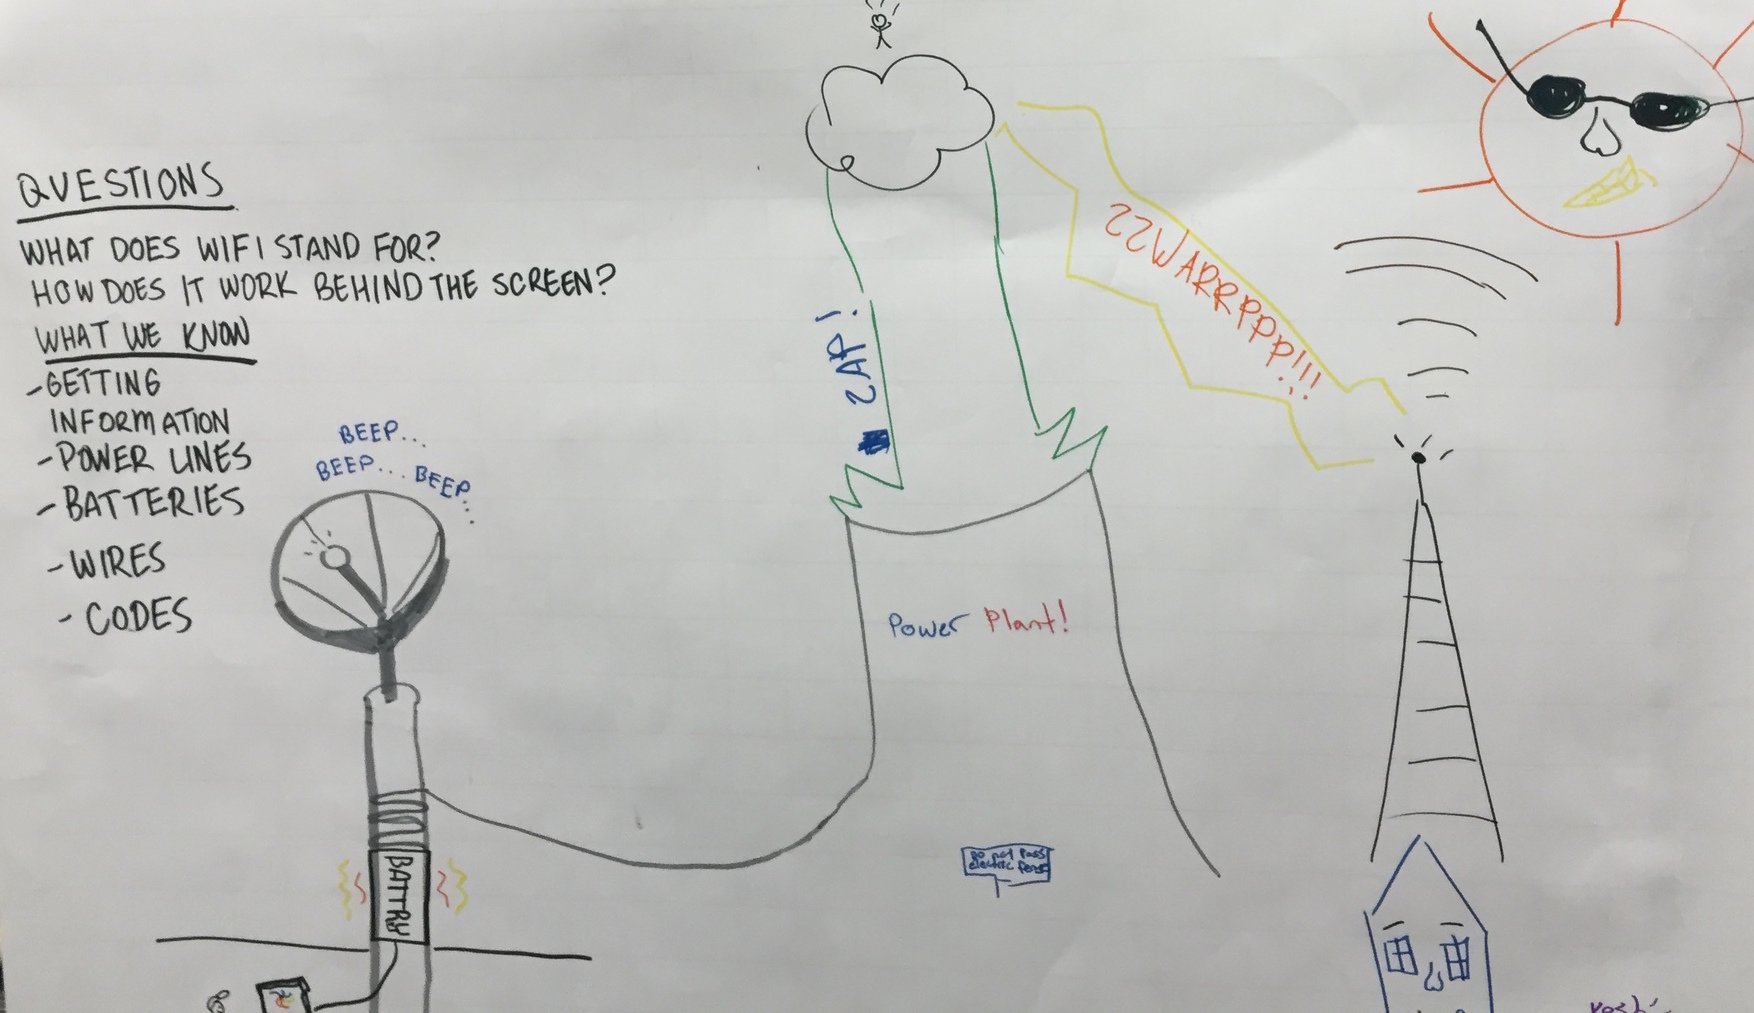 QUESTIONS
WHAT DOES WIFI STAND FOR?
HOW DOES IT WORK BEHIND THE SCREEN?
WHAT WE KNOW
-GETTING
INFORMATION
-POWER LINES
-BATTERIES
-WIRES
-CODES
BEEP...
BEEP... BEEP...
BATTRY
ZAP!
ZZWARRRPPP!!!
Power Plant!
Do not Pass
electric